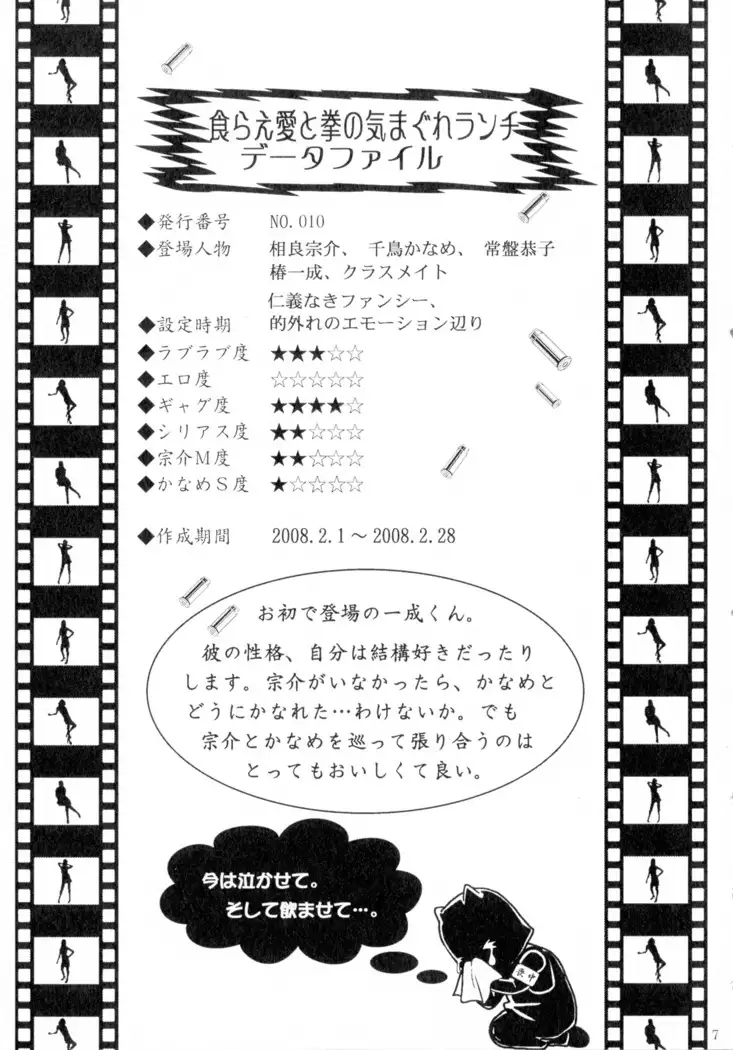 食らえ愛と拳の気まぐれランチ
データファイル
◆発行番号 NO.010
◆登場人物 相良宗介、 千鳥かなめ、 常盤恭子
椿一成、クラスメイト
仁義なきファンシー、
◆設定時期 的外れのエモーション辺り
◆ラブラブ度 ★★★☆☆
◆エロ度 ☆☆☆☆☆
◆ギャグ度 ★★★★☆
◆シリアス度 ★★☆☆☆
◆宗介M度 ★★☆☆☆
◆かなめS度 ★☆☆☆☆
◆作成期間 2008.2.1～2008.2.28
お初で登場の一成くん。
彼の性格、自分は結構好きだったり
します。宗介がいなかったら、かなめと
どうにかなれた…わけないか。でも
宗介とかなめを巡って張り合うのは
とってもおいしくて良い。
今は泣かせて。
そして飲ませて…。
喪中
7